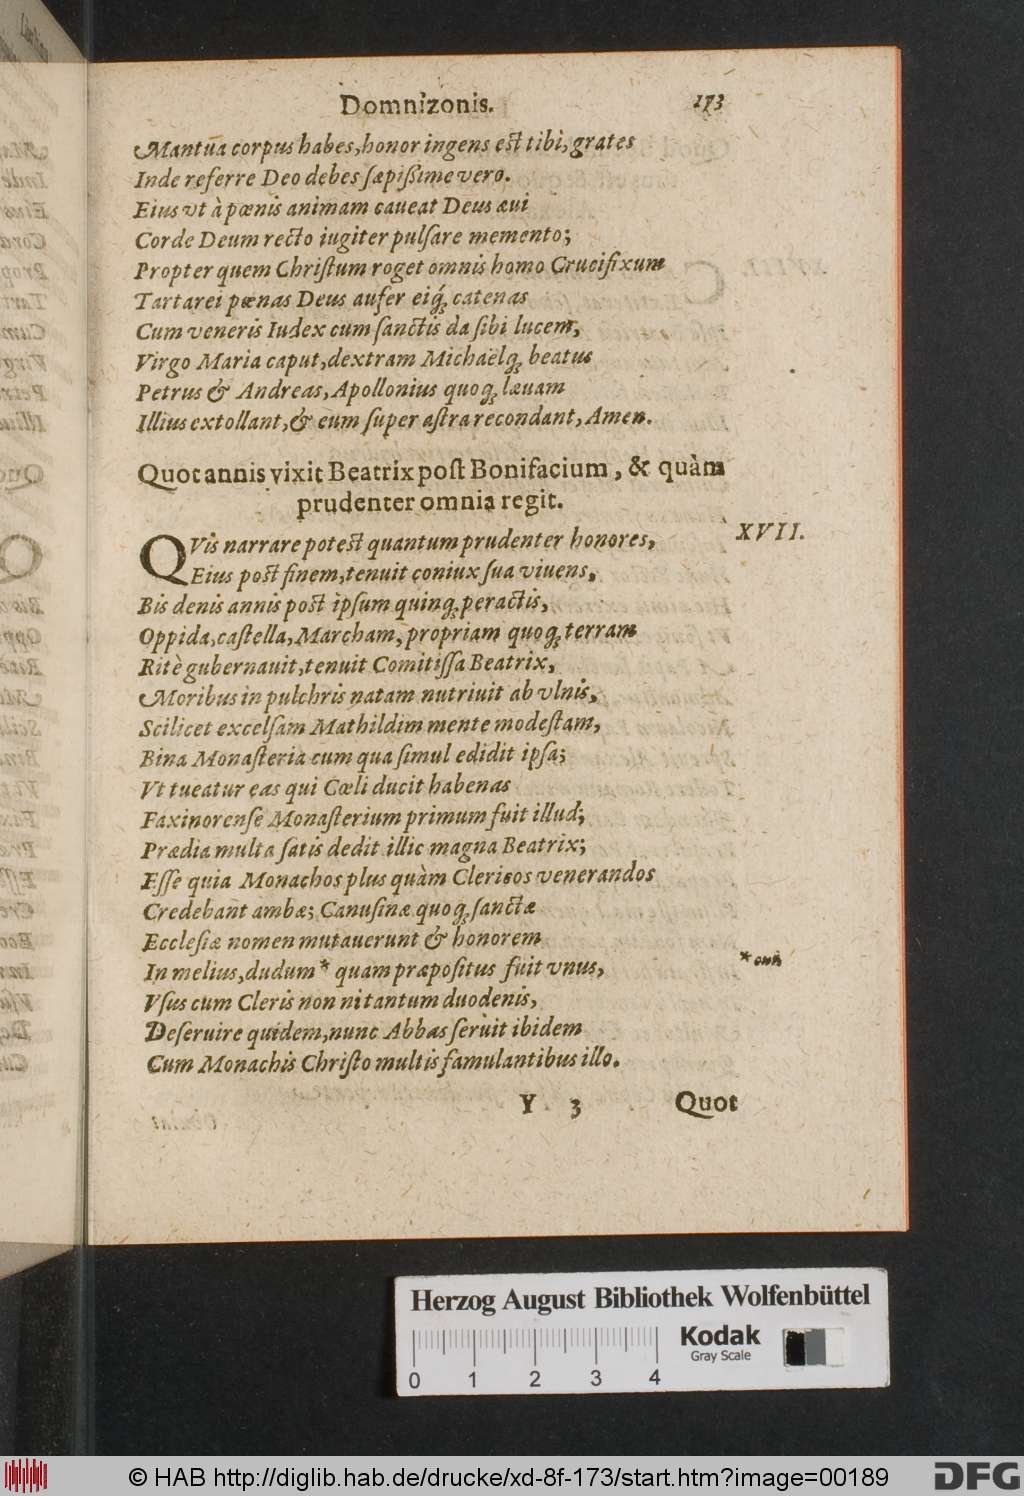 Domnizonis. 173
Mantua corpus habes, honor ingens est tibi, grates
Inde referre Deo debes sæpißime vero.
Eius vt à pœnis animam caueat Deus æui
Corde Deum recto iugiter pulsare memento;
Propter quem Christum roget omnis homo Crucifixum
Tartarei pœnas Deus aufer eiq́; catenas
Cum veneris Iudex cum sanctis da sibi lucem,
Virgo Maria caput, dextram Michaëlq; beatus
Petrus & Andreas, Apollonius quoq; læuam
Illius extollant, & eum super astra recondant, Amen.
Quot annis vixit Beatrix post Bonifacium, & quàm
prudenter omnia regit.
QVis narrare potest quantum prudenter honores, XVII.
Eius post finem, tenuit coniux sua viuens,
Bis denis annis post ipsum quinq; peractis,
Oppida, castella, Marcham, propriam quoq; terram
Ritè gubernauit, tenuit Comitissa Beatrix,
Moribus in pulchris natam nutriuit ab vlnis,
Scilicet excelsam Mathildim mente modestam,
Bina Monasteria cum qua simul edidit ipsa;
Vt tueatur eas qui Cœli ducit habenas
Faxinorense Monasterium primum fuit illud;
Prædia multa satis dedit illic magna Beatrix;
Esse quia Monachos plus quàm Clericos venerandos
Credebant ambæ; Canusinæ quoq; sanctæ
Ecclesiæ nomen mutauerunt & honorem
In melius, dudum * quam præpositus fuit vnus, * cui
Vsus cum Cleris non ni tantum duodenis,
Deseruire quidem, nunc Abbas seruit ibidem
Cum Monachis Christo multis famulantibus illo.
Y 3 Quot
Herzog August Bibliothek Wolfenbüttel
Kodak
Gray Scale
0 1 2 3 4
© HAB http://diglib.hab.de/drucke/xd-8f-173/start.htm?image=00189 DFG